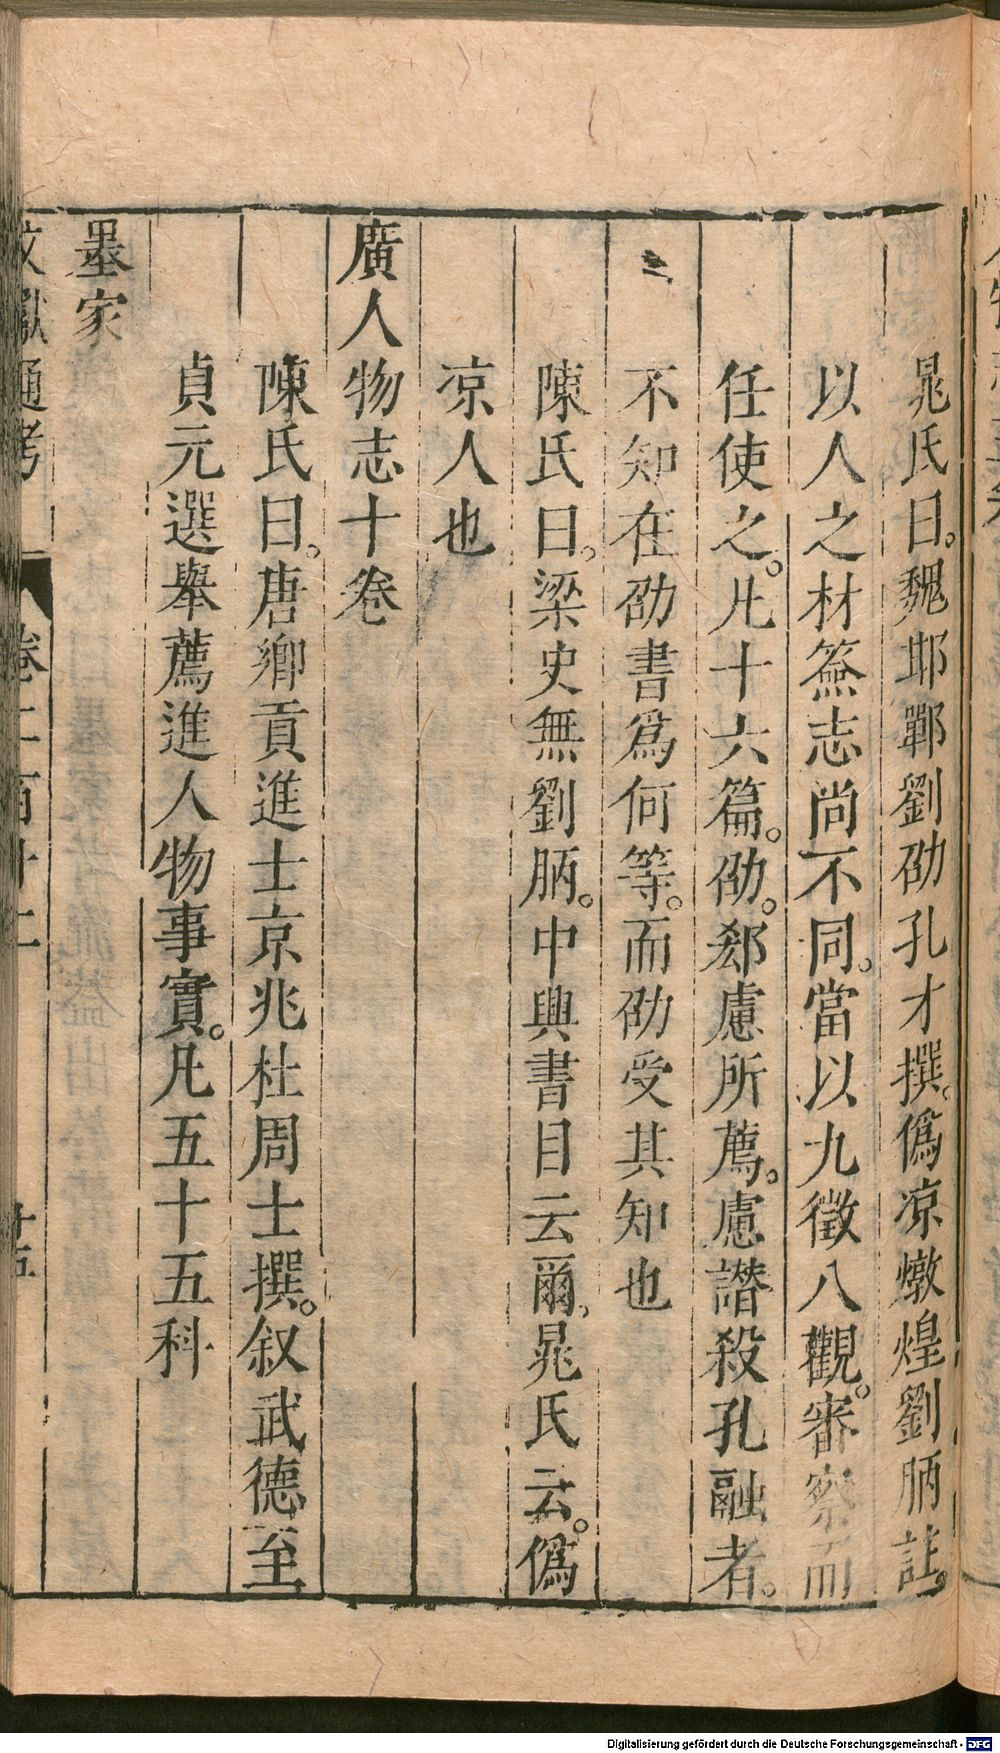 晁氏曰。魏邯鄲劉劭孔才撰。僞凉燉煌劉昞註。
以人之材器志尚不同。當以九徵八觀。審察而
任使之。凡十六篇。劭。郄慮所薦。慮譖殺孔融者。
不知在劭書爲何等。而劭受其知也
陳氏曰。梁史無劉昞。中興書目云爾。晁氏云。僞
凉人也
廣人物志十卷
陳氏曰。唐鄉貢進士京兆杜周士撰。叙武德至
貞元選舉薦進人物事實。凡五十五科
墨家
文獻通考 卷二百十二 十五
Digitalisierung gefördert durch die Deutsche Forschungsgemeinschaft - DFG